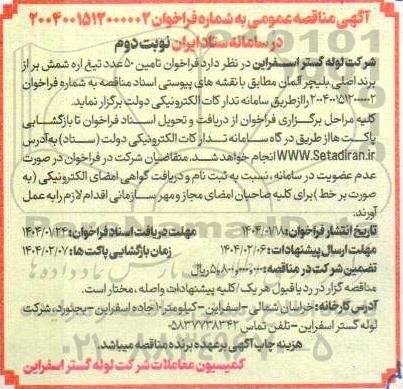 آگهی مناقصه عمومی به شماره فراخوان ۲۰۰۴۰۰۱۵۱۲۰۰۰۰۰۲
در سامانه ستاد ایران نوبت دوم
شرکت لوله گستر اسفراین در نظر دارد فراخوان تامین ۵۰ عدد تیغ اره شمش بر از
برند اصلی بلیچر آلمان مطابق با نقشه های پیوستی اسناد مناقصه به شماره فراخوان
۲۰۰۴۰۰۱۵۱۲۰۰۰۰۰۲ را از طریق سامانه تدارکات الکترونیکی دولت برگزار نماید.
کلیه مراحل برگزاری فراخوان از دریافت و تحویل اسناد فراخوان تا بازگشایی
پاکت ها از طریق درگاه سامانه تدارکات الکترونیکی دولت (ستاد) به آدرس
WWW.Setadiran.ir انجام خواهد شد. متقاضیان شرکت در فراخوان در صورت
عدم عضویت در سامانه، نسبت به ثبت نام و دریافت گواهی امضای الکترونیکی (به
صورت بر خط) برای کلیه صاحبان امضای مجاز و مهر سازمانی اقدام لازم را به عمل
آورند.
تاریخ انتشار فراخوان: ۱۴۰۴/۰۱/۱۸ مهلت دریافت اسناد فراخوان: ۱۴۰۴/۰۱/۲۴
مهلت ارسال پیشنهادات: ۱۴۰۴/۰۲/۰۶ زمان بازگشایی پاکت ها: ۱۴۰۴/۰۲/۰۷
تضمین شرکت در مناقصه: ریال
مناقصه گزار در رد یا قبول هر یک / کلیه پیشنهادات واصله، مختار است.
آدرس کارخانه: خراسان شمالی - اسفراین - کیلومتر ۱۰ جاده اسفراین - بجنورد، شرکت
لوله گستر اسفراین - تلفن تماس ۰۵۸۳۷۷۳۸۳۴۲
هزینه چاپ آگهی بر عهده برنده مناقصه میباشد.
کمیسیون معاملات شرکت لوله گستر اسفراین